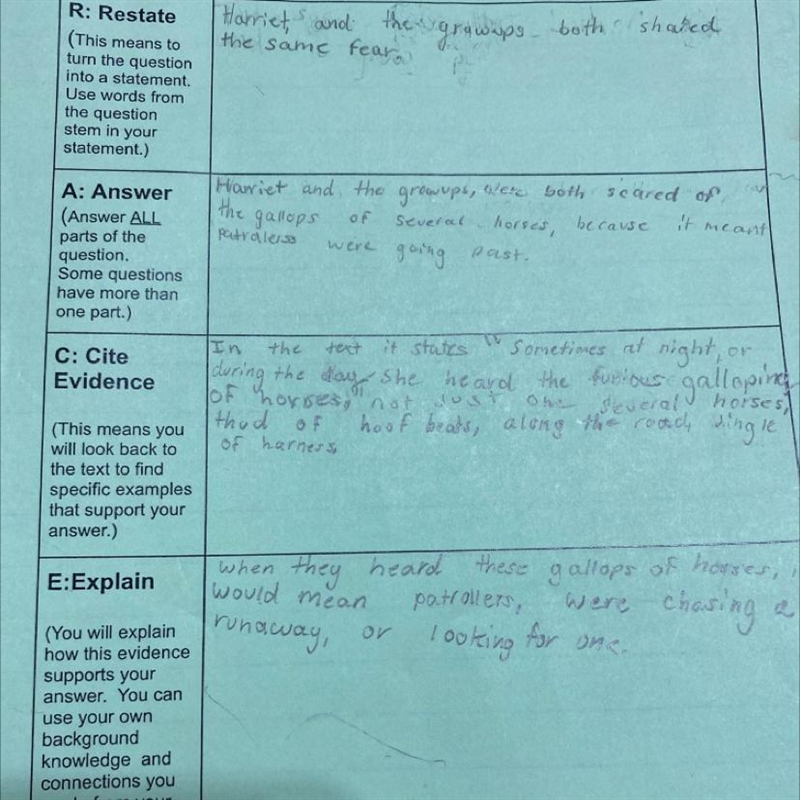 R: Restate
(This means to
turn the question
into a statement.
Use words from
the question
stem in your
statement.)
Harriet, and the growups both shared
the same fear.
A: Answer
(Answer ALL
parts of the
question.
Some questions
have more than
one part.)
Harriet and the growups, were both scared of
the gallops of several horses, because it meant
patrolerss were going past.
C: Cite
Evidence
(This means you
will look back to
the text to find
specific examples
that support your
answer.)
In the text it states " Sometimes at night, or
during the day she heard the furious galloping
of horses," not just one several horses,
thud of hoof beats, along the road, jingle
of harness,
E:Explain
(You will explain
how this evidence
supports your
answer. You can
use your own
background
knowledge and
connections you
when they heard these gallops of horses,
would mean patrollers, were chasing a
runaway, or looking for one.